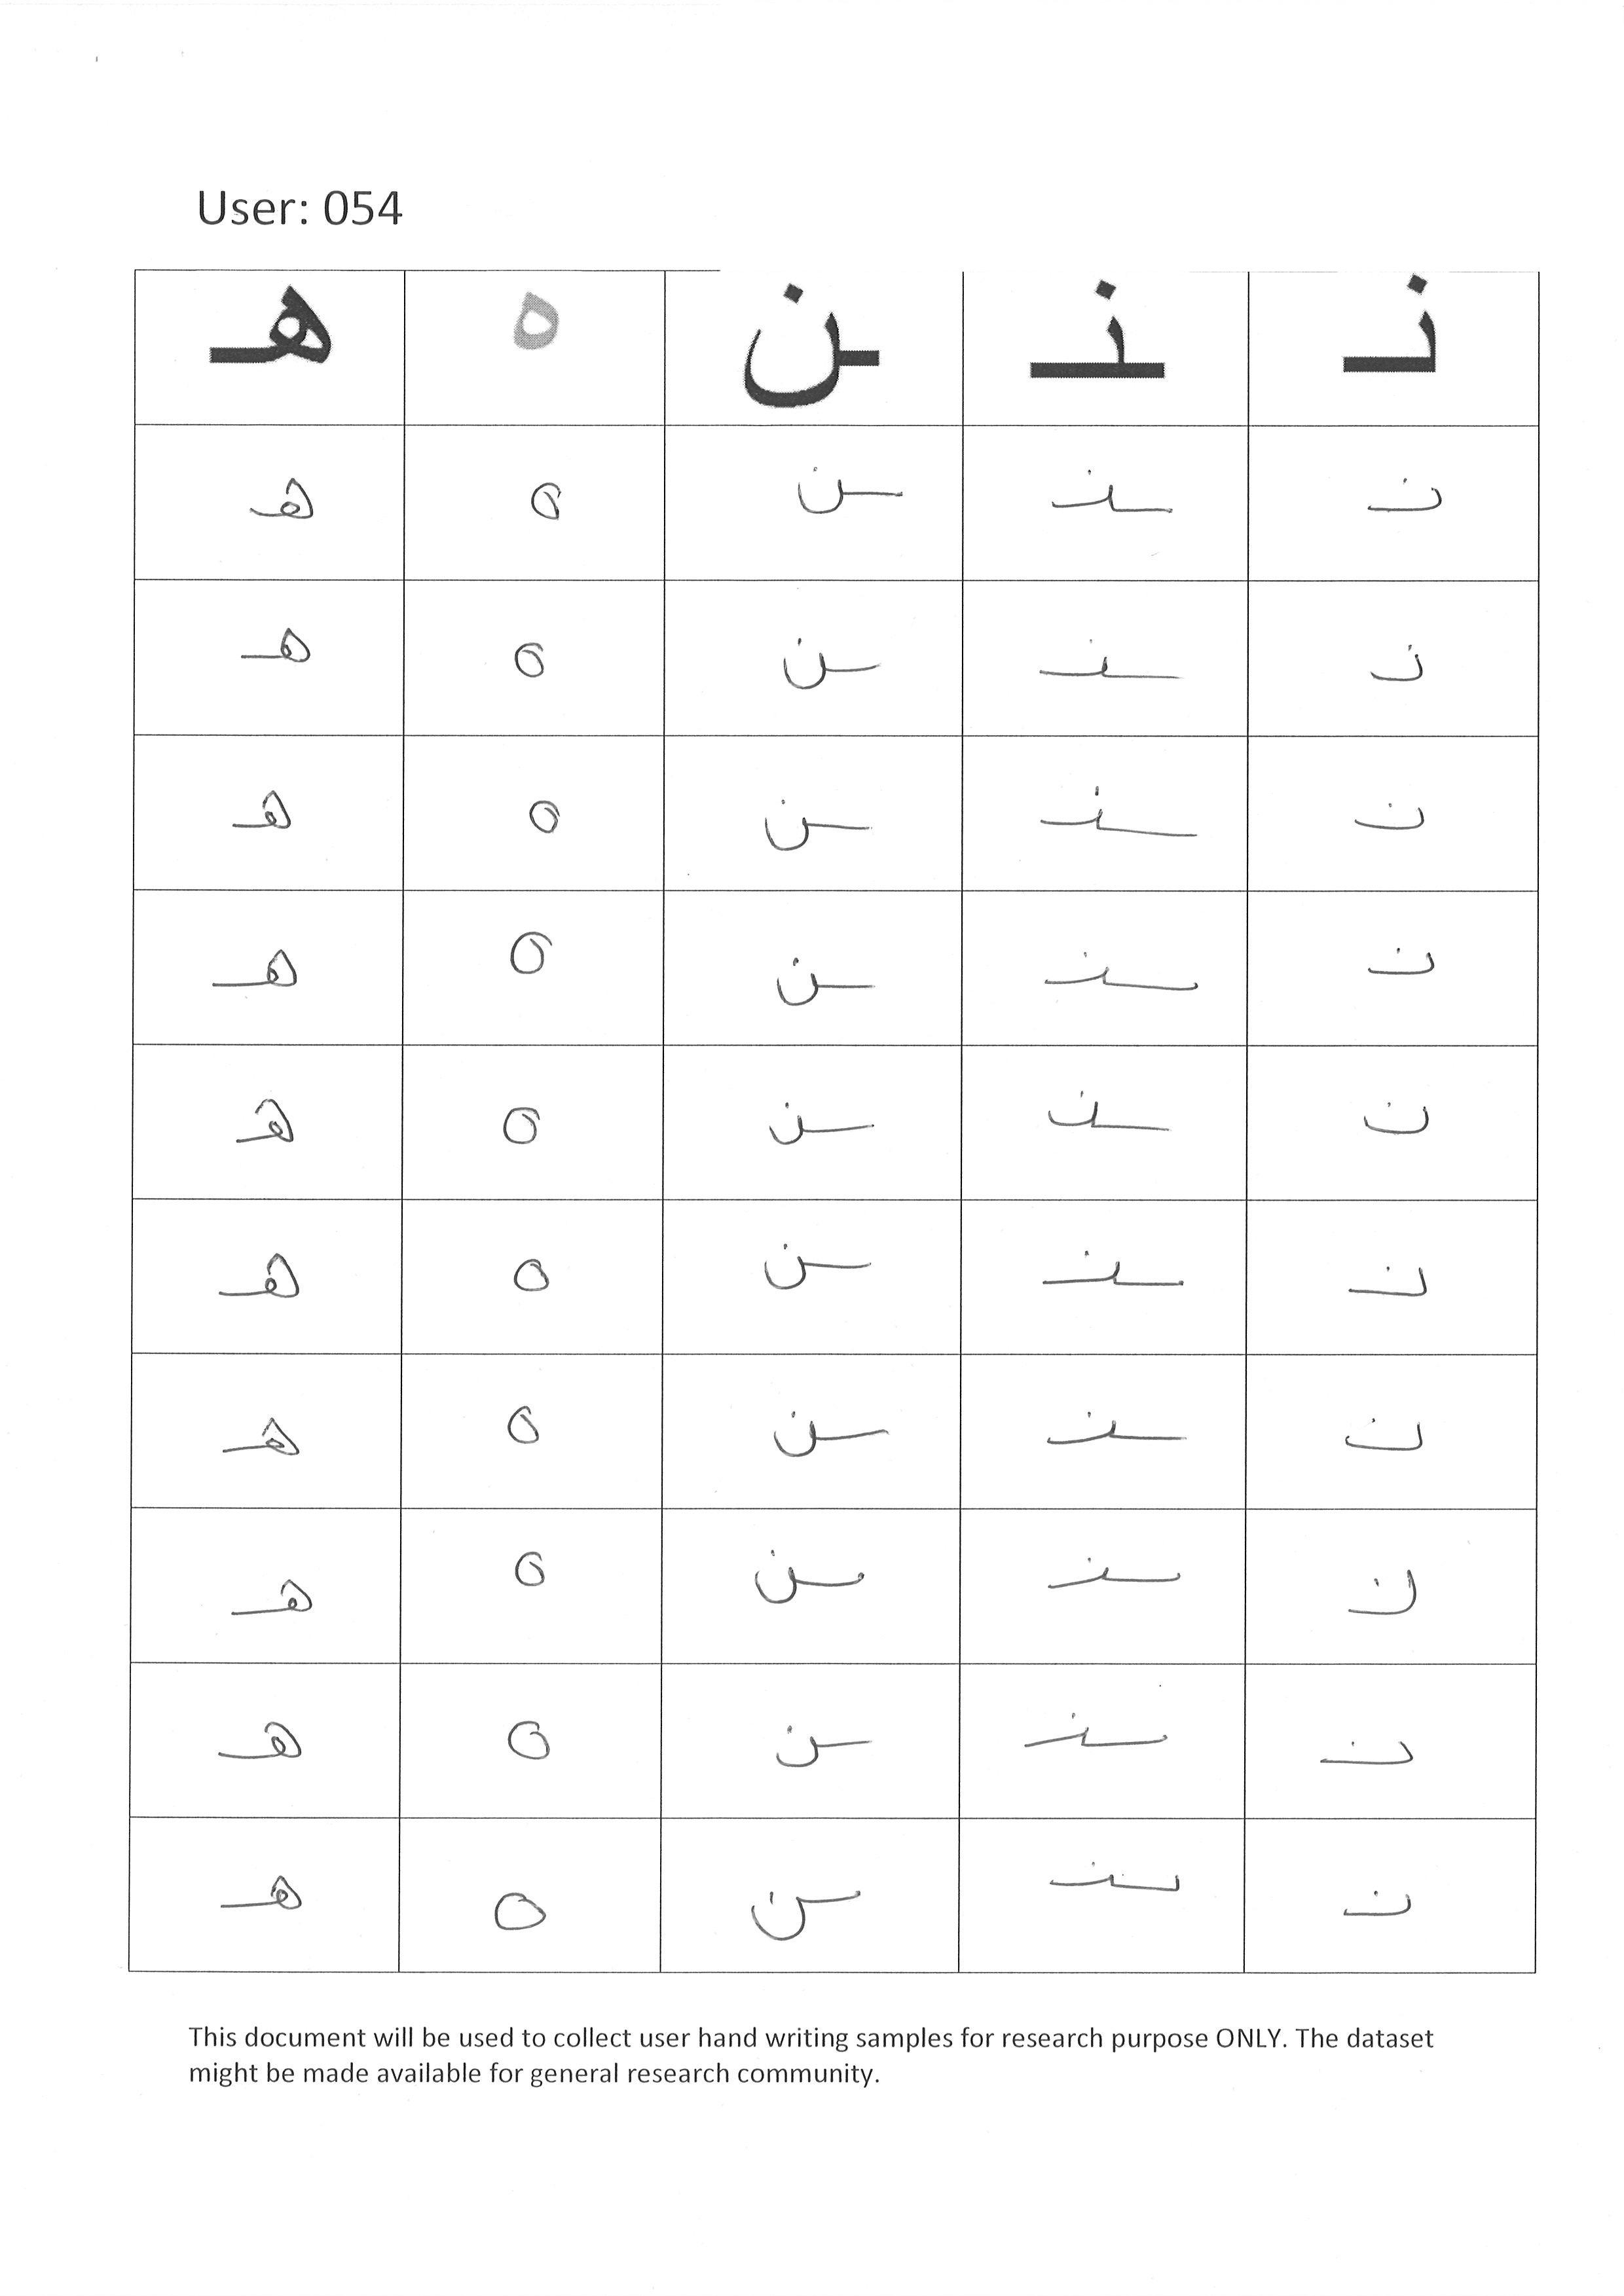 User: 054
هـ ه ـن ـنـ نـ
هـ ه ـن ـنـ نـ
هـ ه ـن ـنـ نـ
هـ ه ـن ـنـ نـ
هـ ه ـن ـنـ نـ
هـ ه ـن ـنـ نـ
هـ ه ـن ـنـ نـ
هـ ه ـن ـنـ نـ
هـ ه ـن ـنـ نـ
هـ ه ـن ـنـ نـ
هـ ه ـن ـنـ نـ
This document will be used to collect user hand writing samples for research purpose ONLY. The dataset
might be made available for general research community.